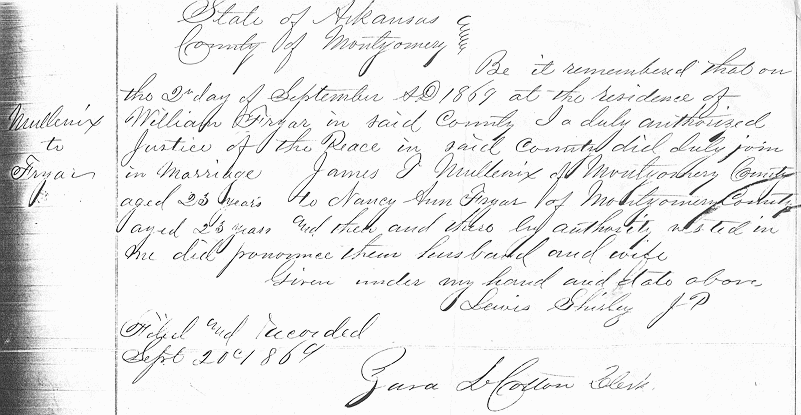 State of Arkansas
County of Montgomery
Be it remembered that on
the 2n day of September AD 1869 at the residence of
William Fryar in said County I a duly authorized
Justice of the Peace in said County did duly join
in Marriage James T Mullenix of Montgomery County
aged 23 years to Nancy Ann Fryar of Montgomery County
aged 25 years and then and there by authority vested in
me did pronounce them husband and wife
Given under my hand and date above
Lewis Shirley J P
Mullenix
to
Fryar
Filed and recorded
Sept 20 1869
Colton Clerk